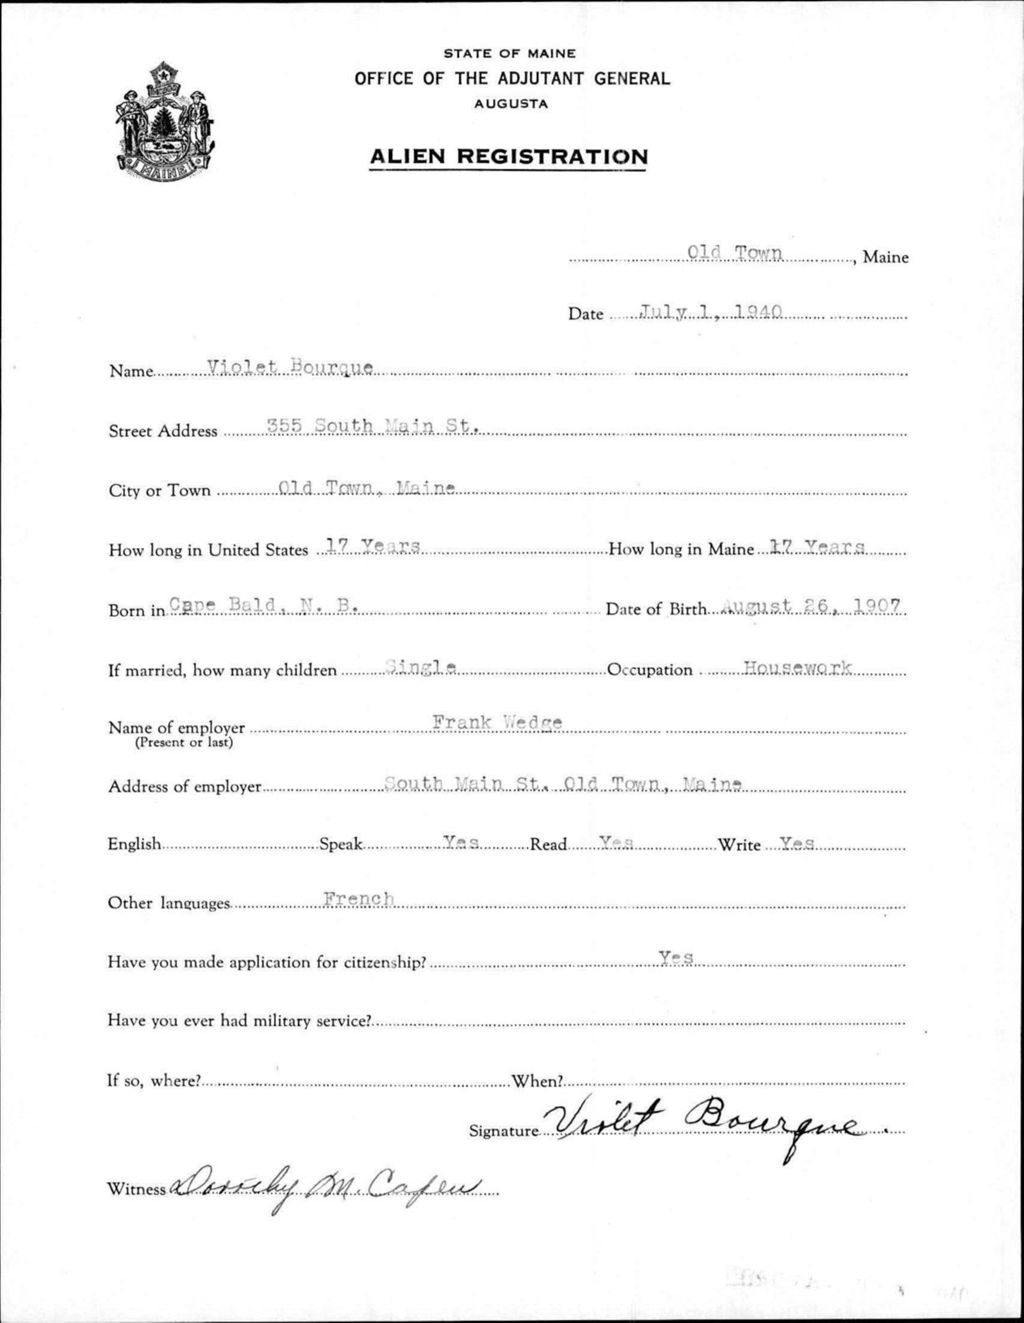 STATE OF MAINE
OFFICE OF THE ADJUTANT GENERAL
AUGUSTA
ALIEN REGISTRATION
MAINE
Old Town, Maine
Date July 1, 1940
Name Violet Bourque
Street Address 355 South Main St.
City or Town Old Town, Maine
How long in United States 17 Years How long in Maine 17 Years
Born in Cape Bald, N. B. Date of Birth August 26, 1907
If married, how many children Single Occupation Housework
Name of employer Frank Wedge
(Present or last)
Address of employer South Main St. Old Town, Maine
English Speak Yes Read Yes Write Yes
Other languages French
Have you made application for citizenship? Yes
Have you ever had military service?
If so, where? When?
Signature Violet Bourque.
Witness Dorothy M. Capen